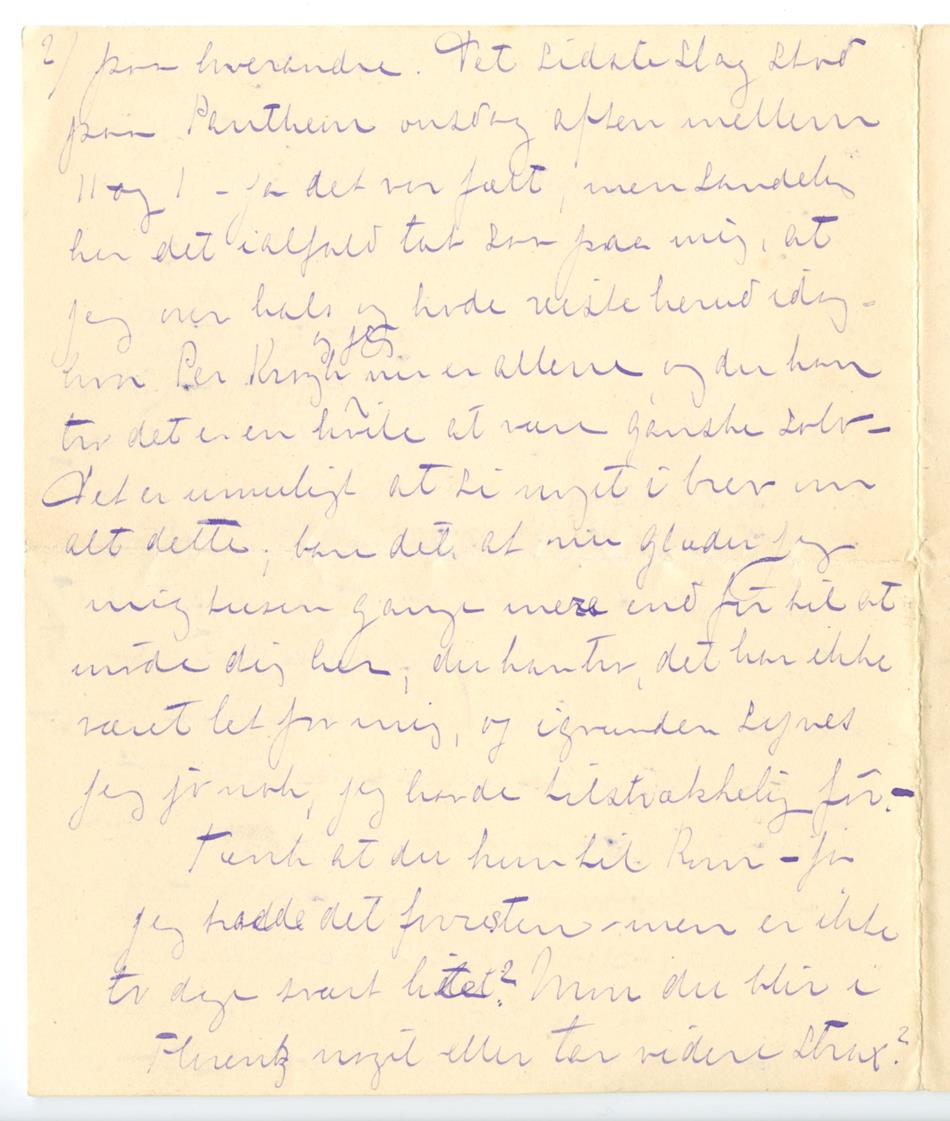 2/ paa hverandre. Det sidste Slag stod
paa Pantheon onsdag aften mellem
11 og 1 – ja det var fælt, men Sandelig
har det ialfald tat saa paa mig, at
jeg over hals og hode reiste herud idag –
hvor Per Krogh og jeg nu er allene, og du kan
tro det er en hvile at være ganske solo –
Det er umuligt at si noget i brev om
alt dette, bare det, at nu glæder jeg
mig tusen gange mere end før til at
møde dig her, du kan tro, det har ikke
været let for mig, og igrunden synes
jeg jo nok, jeg havde tilstrækkelig før. –
Tænk at du kom til Rom – ja
jeg spaadde det forresten – men er ikke
to dage svært litet? Mon du blir i
Florentz noget eller tar videre strax?